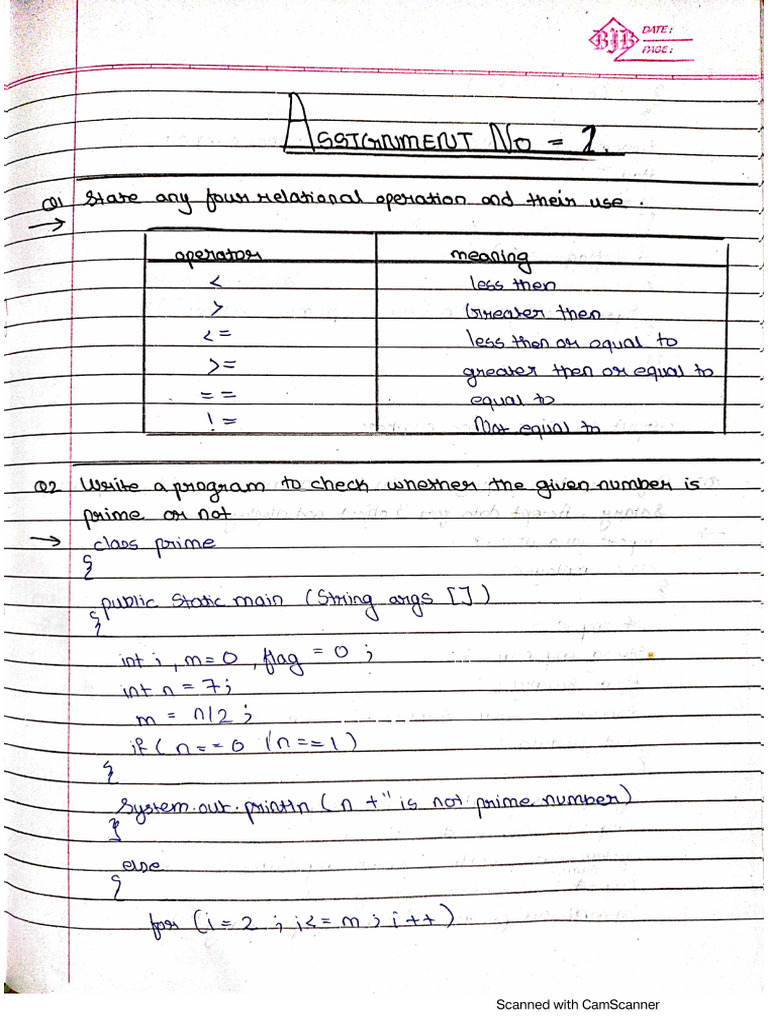 BJB
DATE:
PAGE:
ASSIGNMENT NO = 1.
Q1 State any four relational operation and their use.
→
operator meaning
< less then
> Greater then
<= less then or equal to
>= greater then or equal to
== equal to
!= Not equal to
Q2 Write a program to check whether the given number is
prime or not
→ class prime
{
public static main (String args [])
{
int i, m=0, flag = 0;
int n = 7;
m = n/2;
if ( n==0 | n==1)
{
System.out.println (n +" is not prime number)
}
else
{
for (i = 2 ; i<= m ; i++)
Scanned with CamScanner